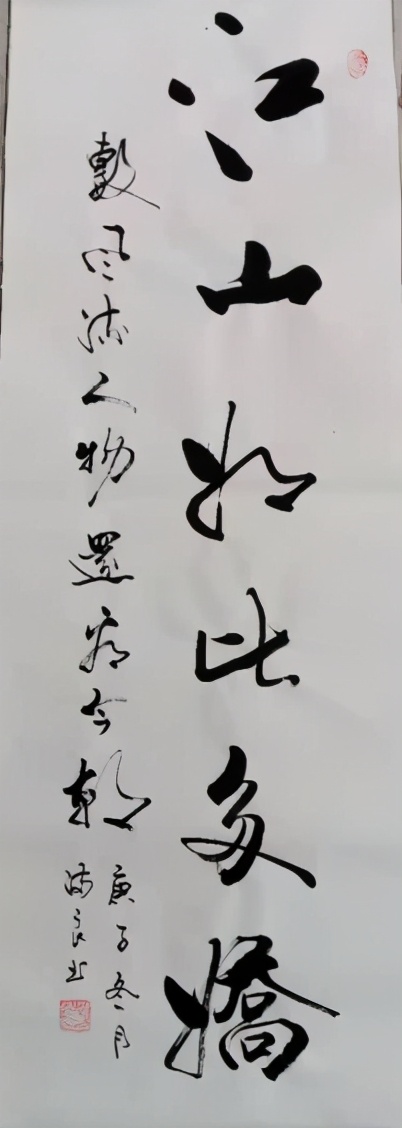 江山如此多嬌
數风流人物還看今朝
庚子冬月
良书